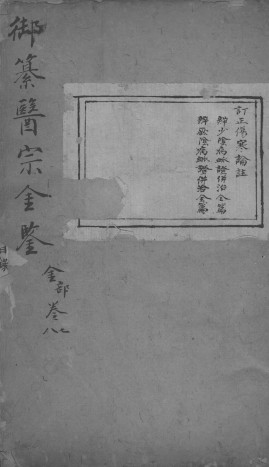 訂正傷寒論註
辨少陰病脈證併治全篇
辨厥陰病脈證併治全篇
金部卷七八
御纂醫宗金鑒